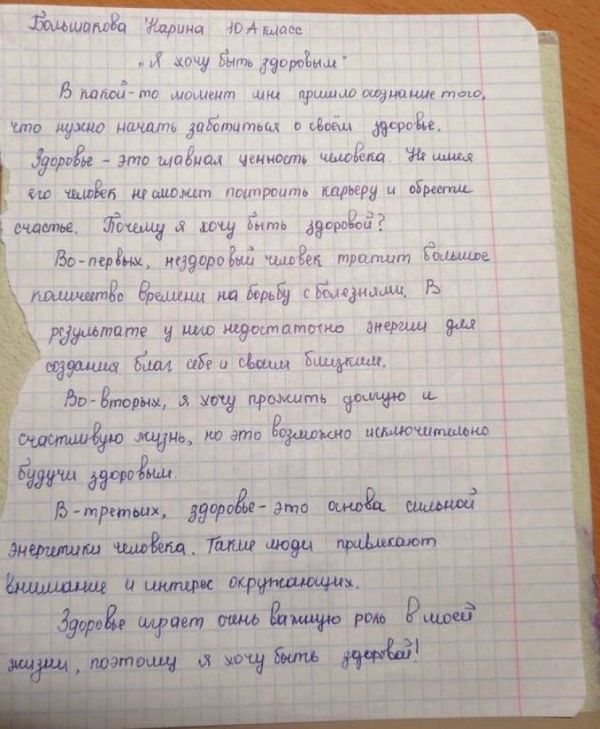 Большакова Карина 10 А класс
„Я хочу быть здоровым"
В какой-то момент мне пришло осознание того,
что нужно начать заботиться о своём здоровье.
Здоровье - это главная ценность человека. Не имея
его человек не сможет построить карьеру и обрести
счастье. Почему я хочу быть здоровой?
Во-первых, нездоровый человек тратит большое
количество времени на борьбу с болезнями. В
результате у него недостаточно энергии для
создания благ себе и своим близким.
Во-вторых, я хочу прожить долгую и
счастливую жизнь, но это возможно исключительно
будучи здоровым.
В-третьих, здоровье - это основа сильной
энергетики человека. Такие люди привлекают
внимание и интерес окружающих.
Здоровье играет очень важную роль в моей
жизни, поэтому я хочу быть здоровой!